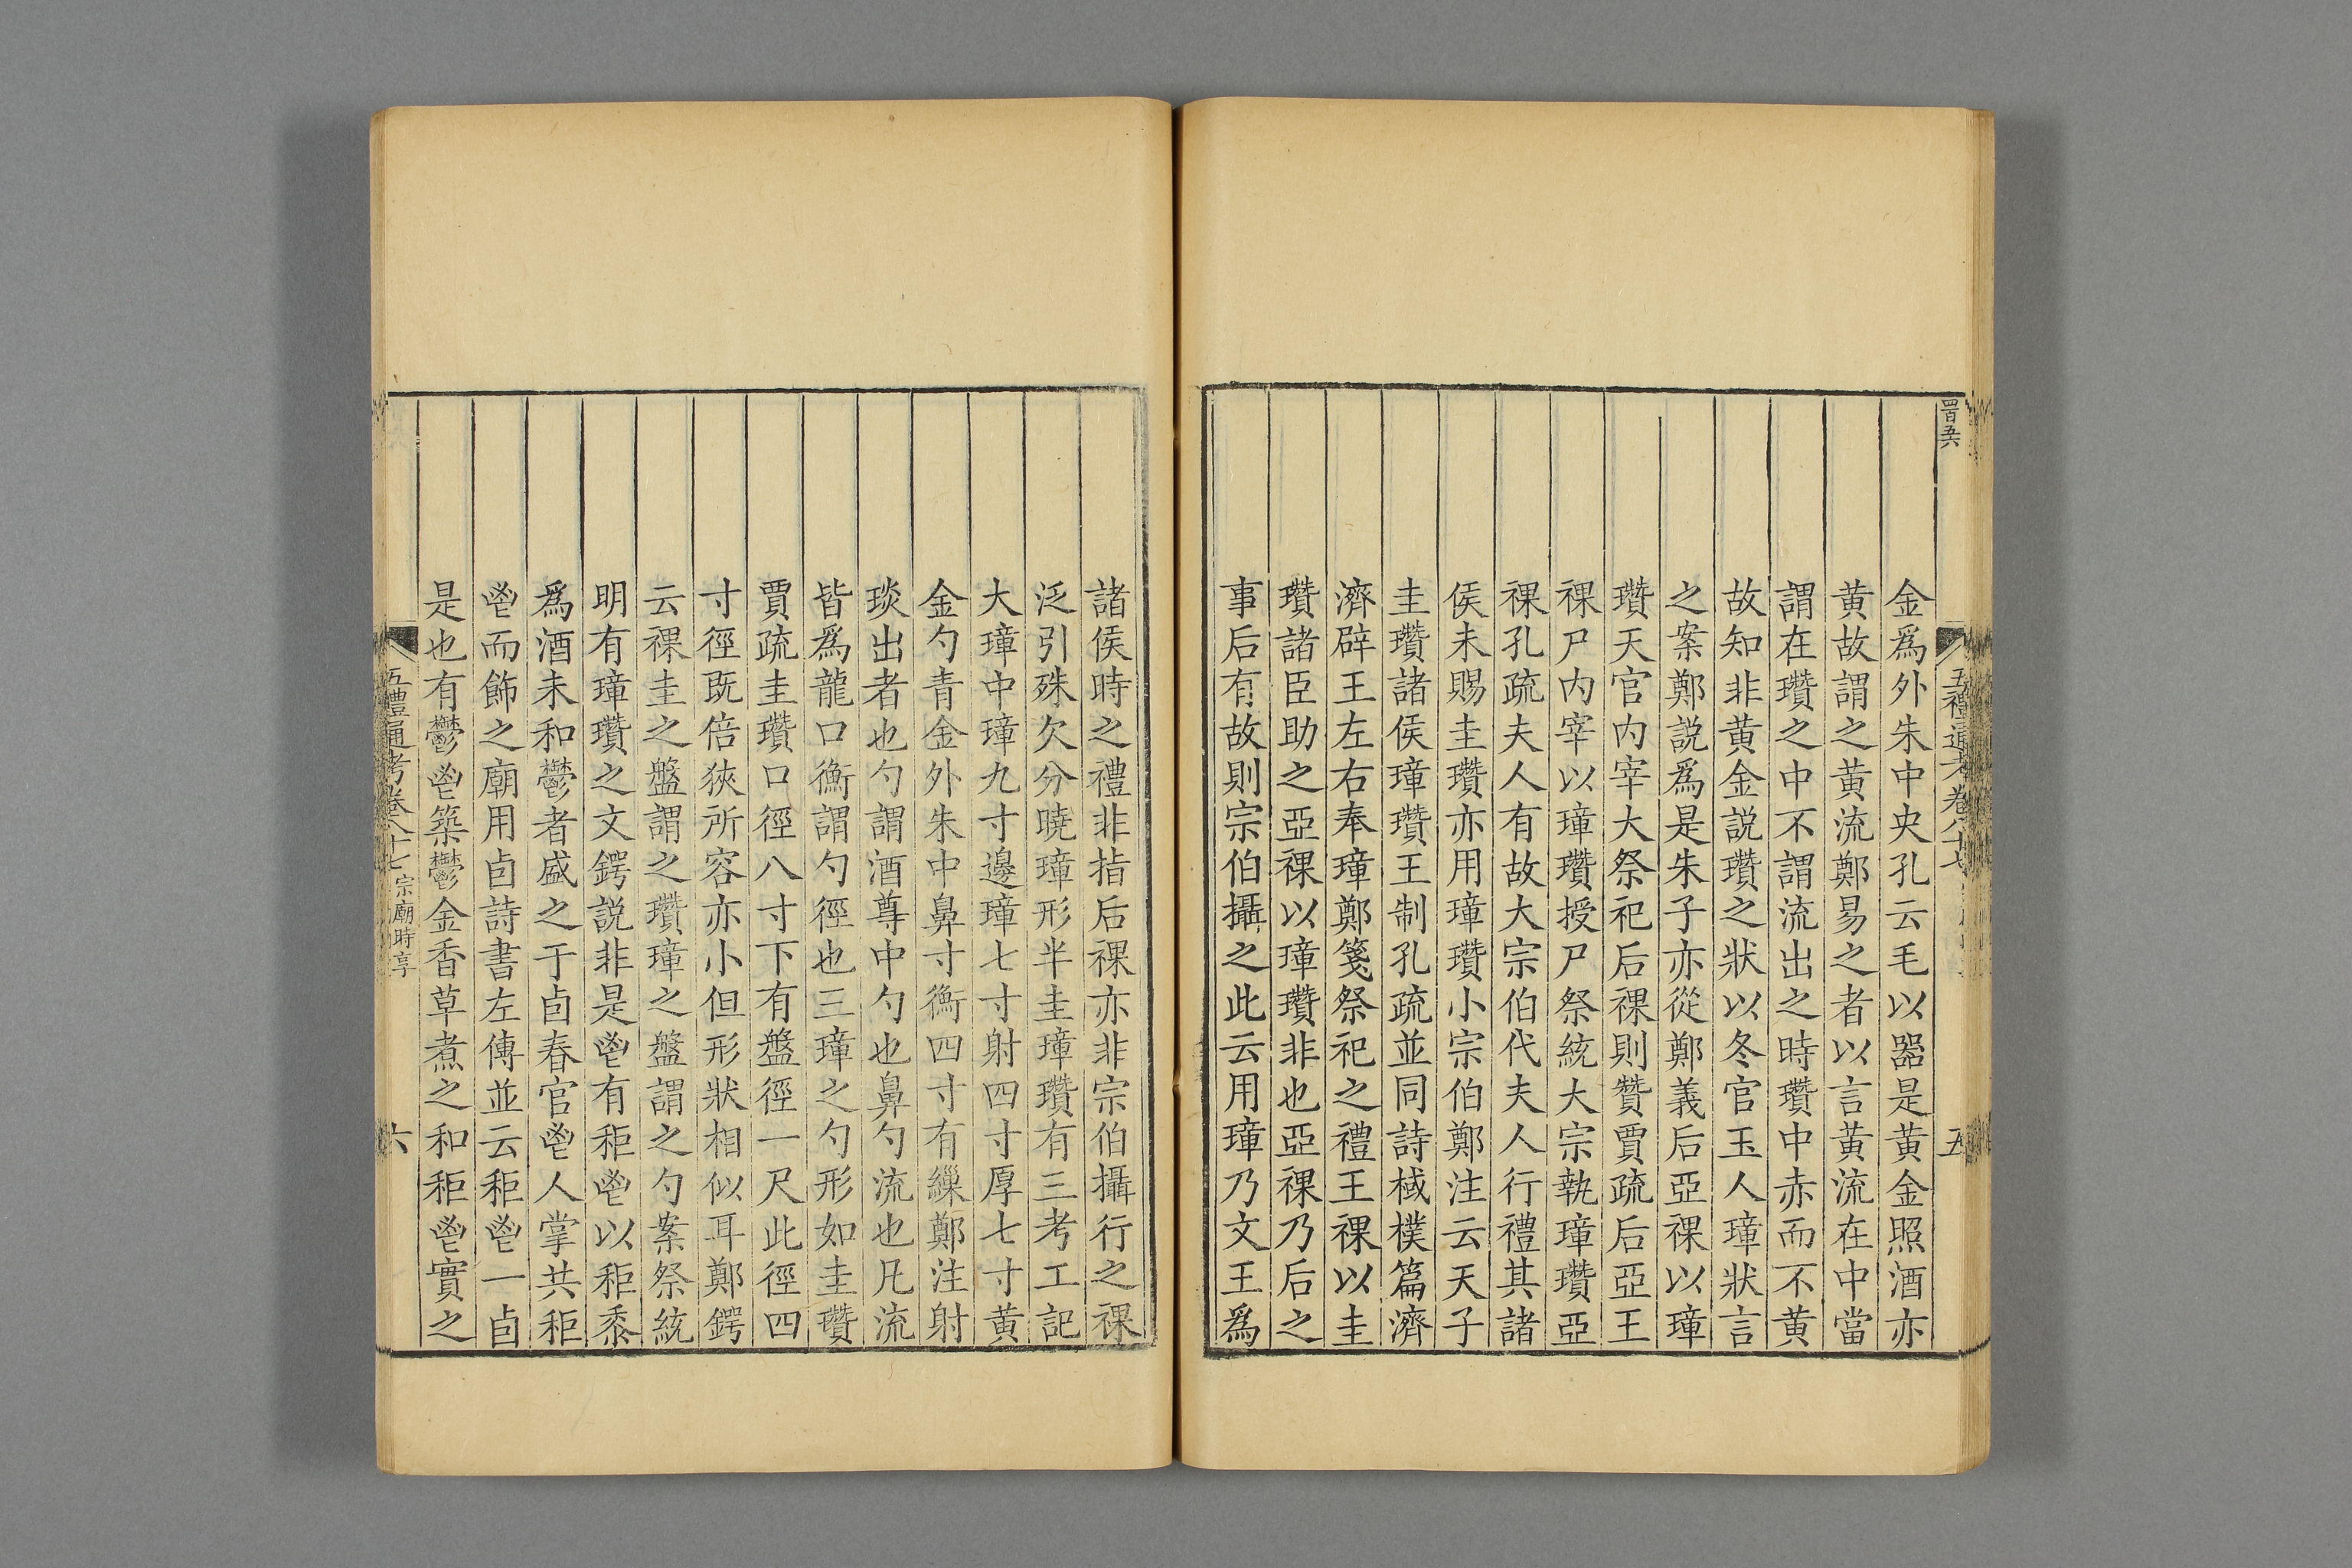 四百五六
五禮通考卷八十七
五
金爲外朱中央孔云毛以器是黄金照酒亦
黄故謂之黄流鄭易之者以言黄流在中當
謂在瓚之中不謂流出之時瓚中赤而不黄
故知非黄金説瓚之狀以冬官玉人璋狀言
之案鄭説爲是朱子亦從鄭義后亞祼以璋
瓚天官内宰大祭祀后祼則贊賈疏后亞王
祼尸内宰以璋瓚授尸祭統大宗執璋瓚亞
祼孔疏夫人有故大宗伯代夫人行禮其諸
侯未賜圭瓚亦用璋瓚小宗伯鄭注云天子
圭瓚諸侯璋瓚王制孔疏並同詩棫樸篇濟
濟辟王左右奉璋鄭箋祭祀之禮王祼以圭
瓚諸臣助之亞祼以璋瓚非也亞祼乃后之
事后有故則宗伯攝之此云用璋乃文王爲
諸侯時之禮非指后祼亦非宗伯攝行之祼
泛引殊欠分曉璋形半圭璋瓚有三考工記
大璋中璋九寸邊璋七寸射四寸厚七寸黄
金勺青金外朱中鼻寸衡四寸有繅鄭注射
琰出者也勺謂酒尊中勺也鼻勺流也凡流
皆爲龍口衡謂勺徑也三璋之勺形如圭瓚
賈疏圭瓚口徑八寸下有盤徑一尺此徑四
寸徑既倍狹所容亦小但形狀相似耳鄭鍔
云祼圭之盤謂之瓚璋之盤謂之勺案祭統
明有璋瓚之文鍔説非是鬯有秬鬯以秬黍
爲酒未和鬱者盛之于卣春官鬯人掌共秬
鬯而飾之廟用卣詩書左傳並云秬鬯一卣
是也有鬱鬯築鬱金香草煮之和秬鬯實之
五禮通考卷八十七 宗廟時享
六